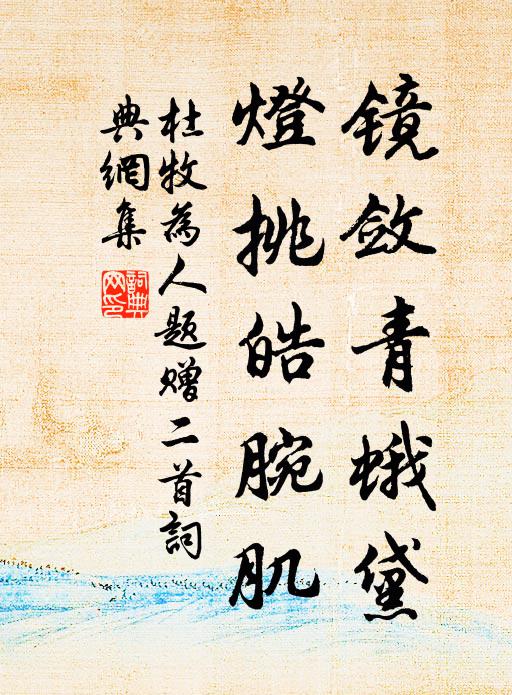 镜敛青蛾黛
燈挑皓腕肌
杜牧為人題赠二首詞
典網集
詞典网印